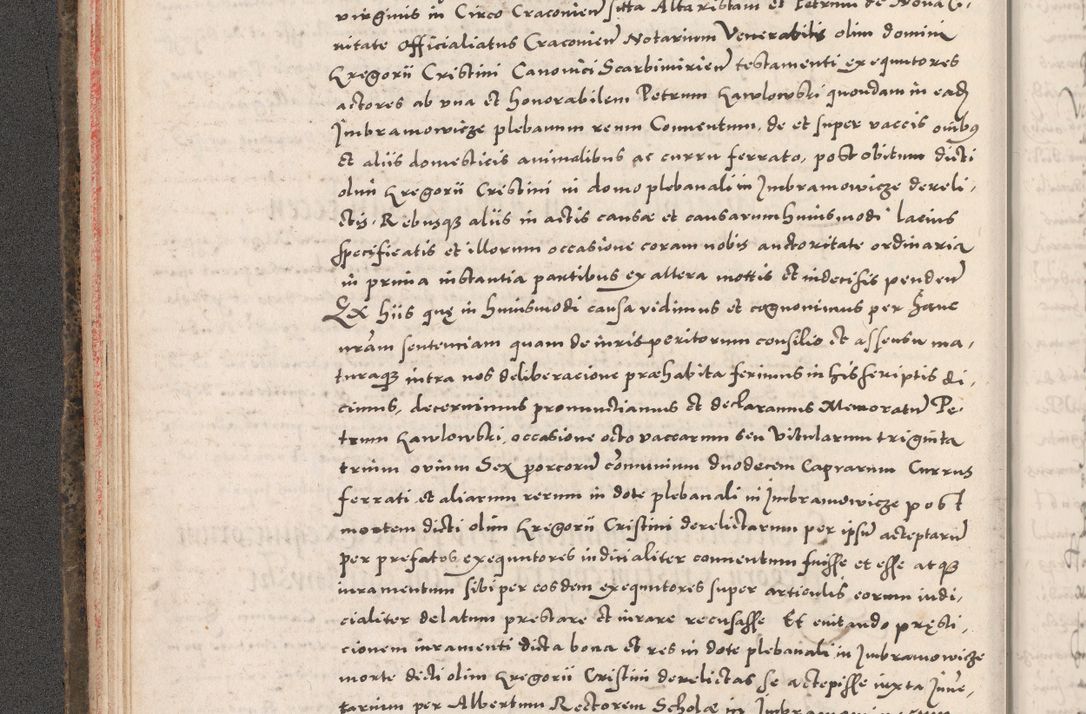 virginis in Circo Cracovien̄ sitta Altaristam et Petrum de Nova Ci,
vitate Officialiatus Cracovien̄ Notarium Venerabilis olim domini
Gregorii Cristini Canonici Scarbimirien̄ testamenti exequutores
actores ab una et honorabilem Petrum Gawlowski quondam in ead̄
Jmbramowicze plebanum reum Conventum, de et super vaccis ovibꝫ
et aliis domesticis animalibus ac curru ferrato, post obitum dicti
olim Gregorii Cristini in domo plebanali in Jmbramowicze dereli,
ctis, Rebusqꝫ aliis in actis causæ et causarum huiusmodi lacius
specificatis et illorum occasione coram nobis auctoritate ordinaria
in prima instantia partibus ex altera mottis et indecisis penden̄
Ex hiis quę in huiusmodi causa vidimus et cognovimus per hanc
nrām sentenciam quam de iuris peritorum consilio et assensu ma,
turaqꝫ intra nos deliberacione præhabita ferimus in his scriptis di,
cimus, decernimus pronunctiamus et declaramus Memoratū Pe,
trum Gawlowski, occasione octo vaccarum seu Vitularum triginta
trium ovium Sex porcorū com̄unium duodecem Caprarum Currus
ferrati et aliarum rerum in dote plebanali in Jmbramowicze post
mortem dicti olim Gregorii Cristini derelictarum per ipsū acceptarū
per prefatos exequutores iudicialiter conventum fuisse et esse atqꝫ
iuramentum sibi per eosdem exequutores super articulis eorum iudi,
cialiter delatum prestare et iurare recusasse Et evitando pręsti,
cionem iuramenti dicta bona et res in dote plebanali in Jmbramowicze
morte dicti olim Gregorii Cristini derelictas se accepisse iuxta Jnvē,
tarium per Albertum Rectorem Scholæ in Jmbramowicze